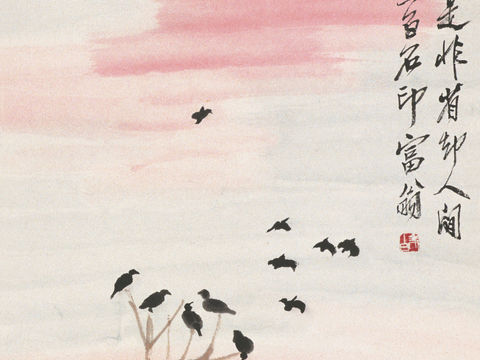 是非省却人间
百石印富翁